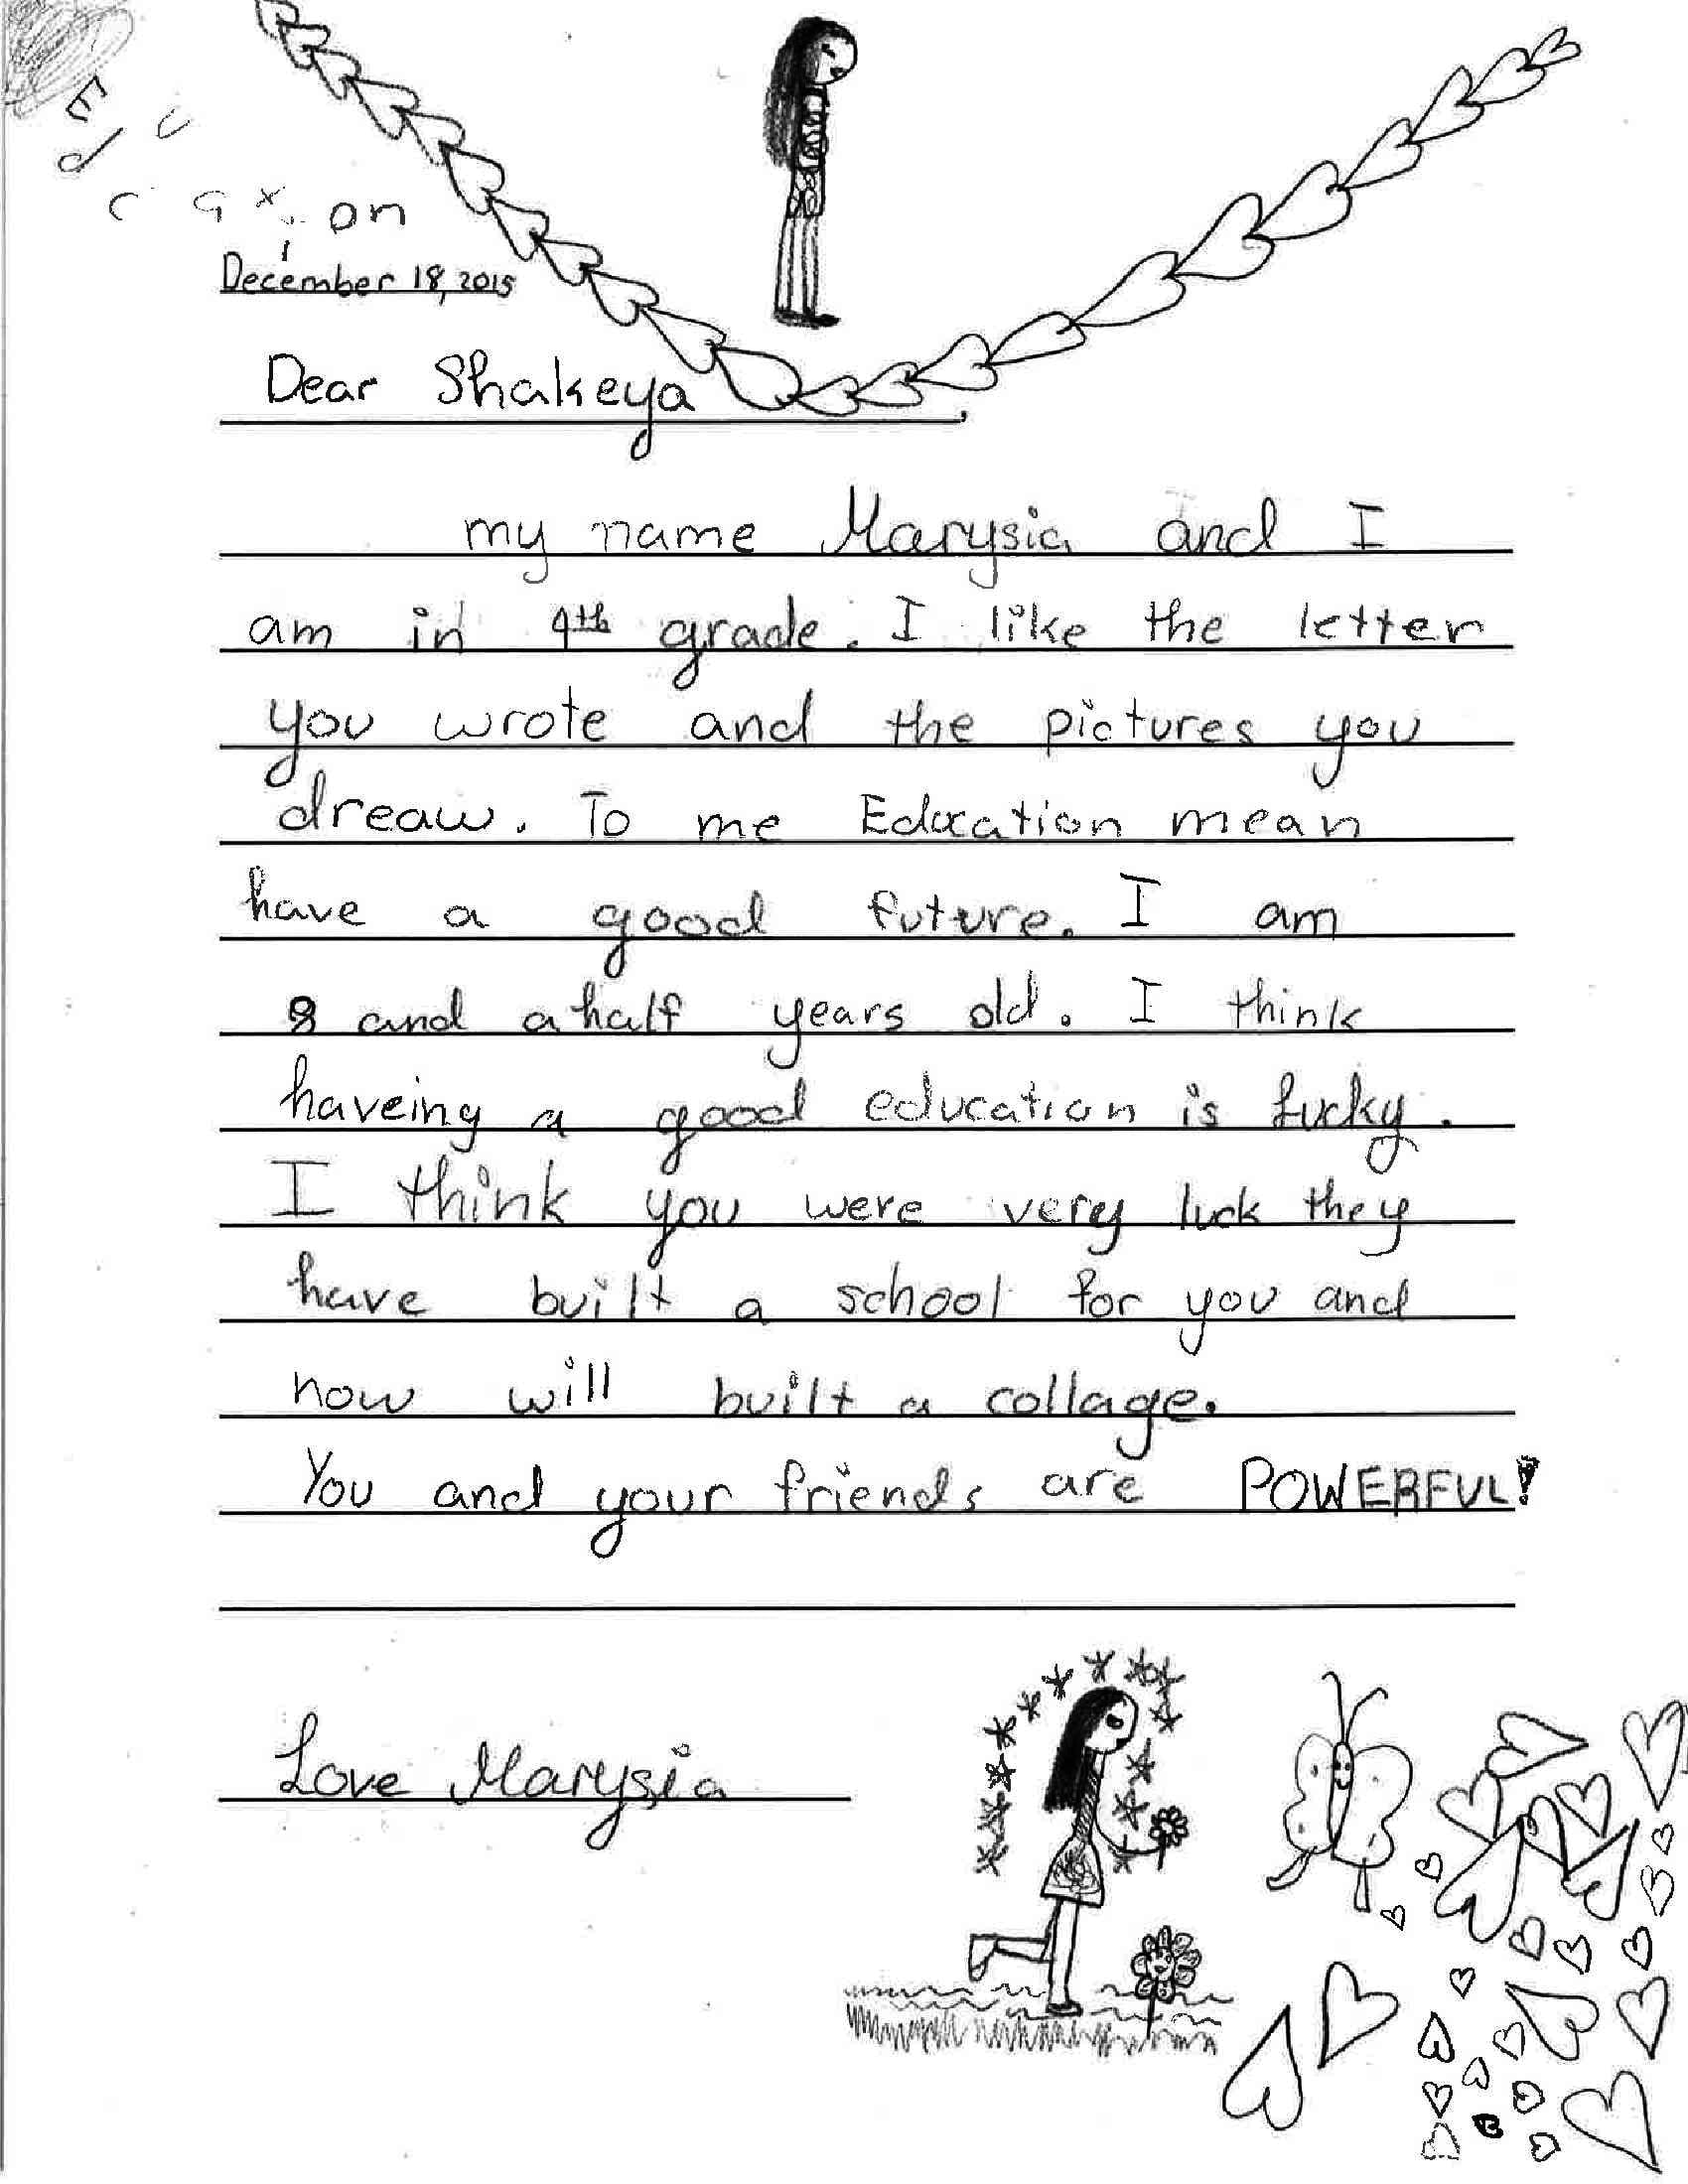 Education
December 18, 2015
Dear Shakeya,
my name Marysia and I
am in 4th grade. I like the letter
you wrote and the pictures you
dreaw. To me Education mean
have a good future. I am
8 and a half years old. I think
haveing a good education is lucky.
I think you were very luck they
have built a school for you and
now will built a collage.
You and your friends are POWERFUL!
Love Marysia